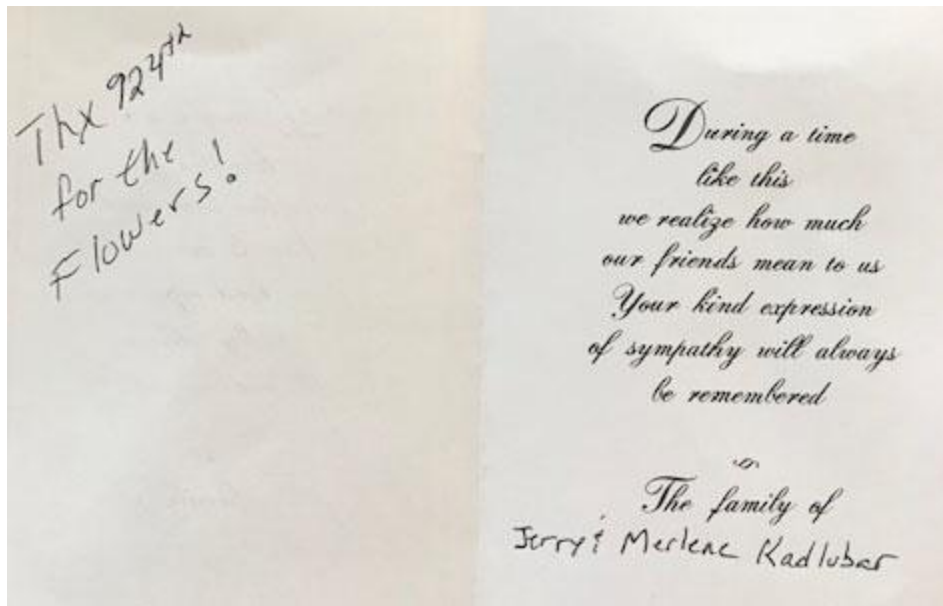 Thx 924th
for the
Flowers!
During a time
like this
we realize how much
our friends mean to us
Your kind expression
of sympathy will always
be remembered
The family of
Jerry & Merlene Kadlubar